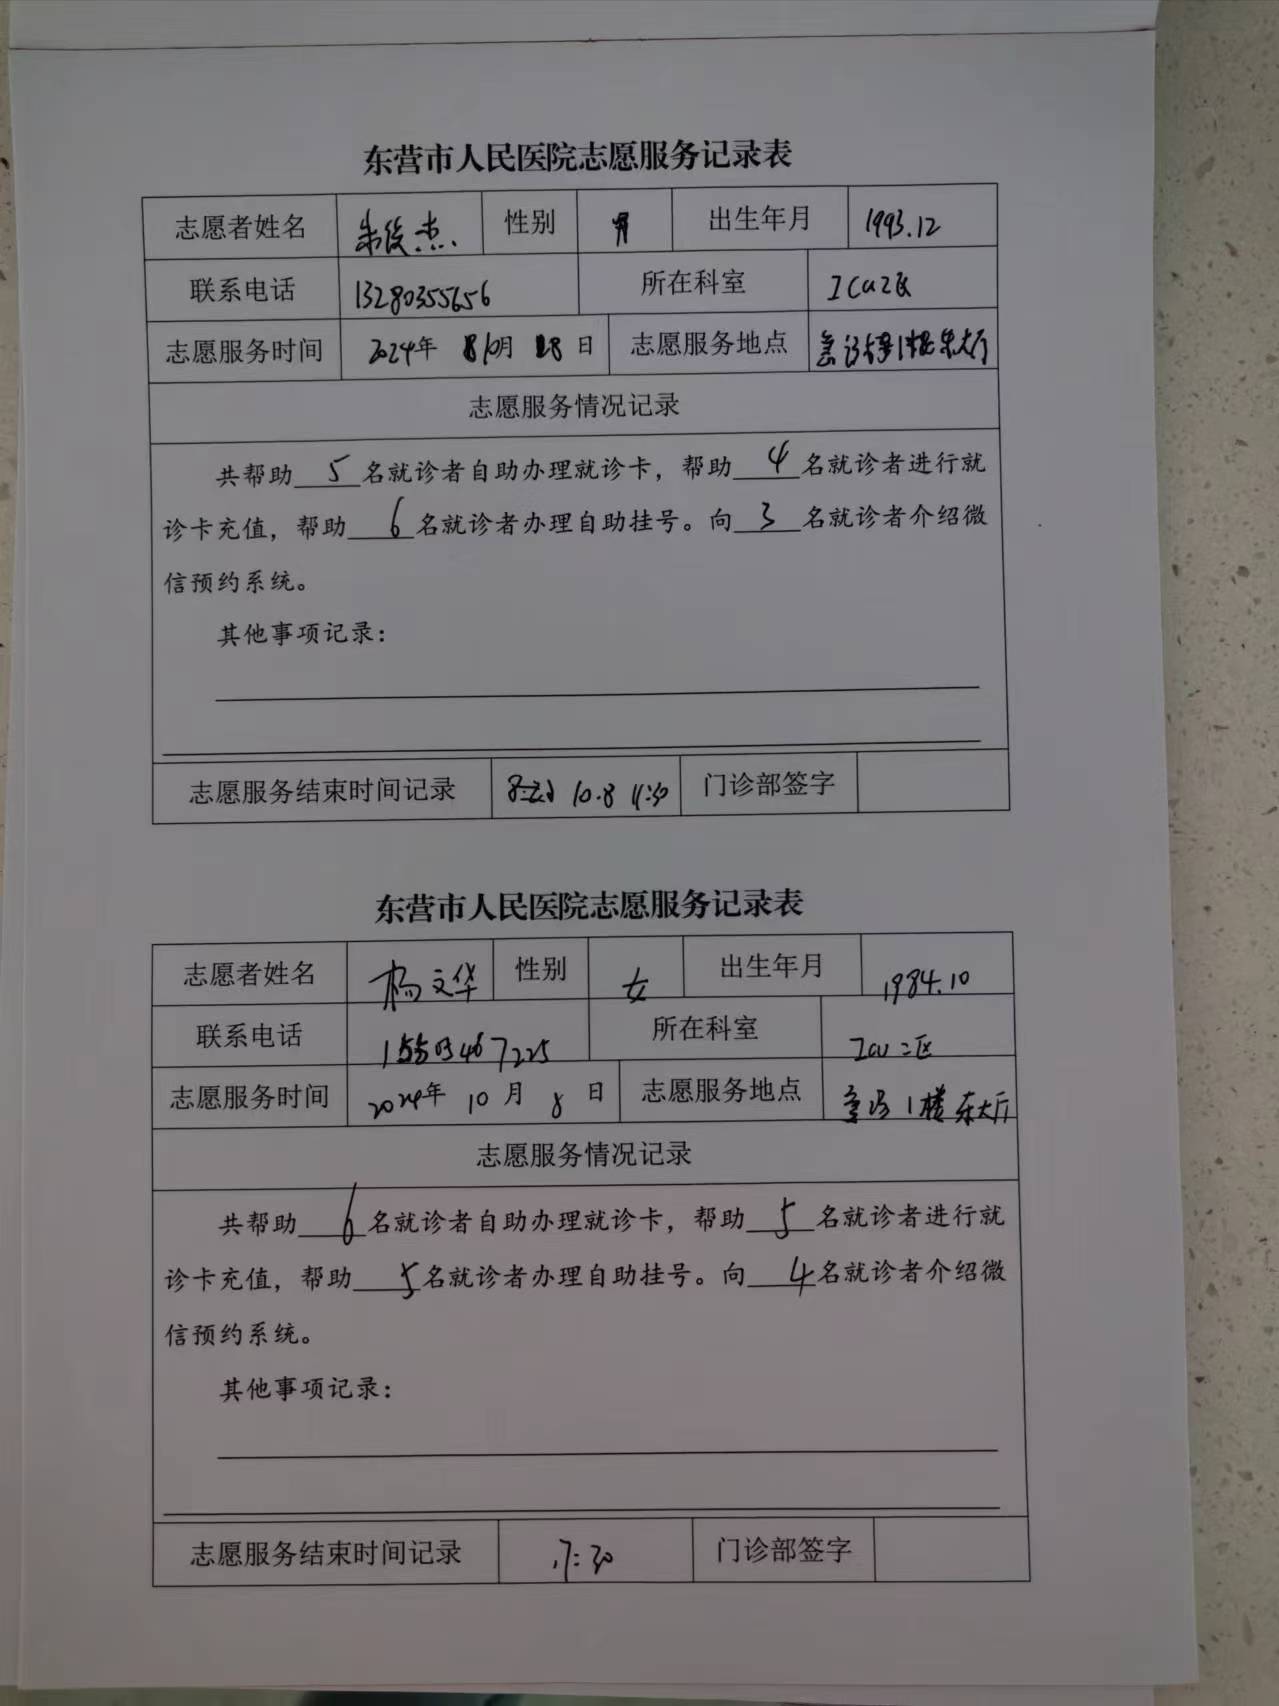 东营市人民医院志愿服务记录表
志愿者姓名 朱俊杰 性别 男 出生年月 1993.12
联系电话 13280355656 所在科室 ICU2区
志愿服务时间 2024年 10月 8日 志愿服务地点 急诊楼1楼东大厅
志愿服务情况记录
共帮助 5 名就诊者自助办理就诊卡，帮助 4 名就诊者进行就
诊卡充值，帮助 6 名就诊者办理自助挂号。向 3 名就诊者介绍微
信预约系统。
其他事项记录：
志愿服务结束时间记录 10.8 11:30 门诊部签字
东营市人民医院志愿服务记录表
志愿者姓名 杨文华 性别 女 出生年月 1984.10
联系电话 15503467225 所在科室 ICU二区
志愿服务时间 2024年 10月 8日 志愿服务地点 急诊1楼东大厅
志愿服务情况记录
共帮助 6 名就诊者自助办理就诊卡，帮助 5 名就诊者进行就
诊卡充值，帮助 5 名就诊者办理自助挂号。向 4 名就诊者介绍微
信预约系统。
其他事项记录：
志愿服务结束时间记录 17:30 门诊部签字